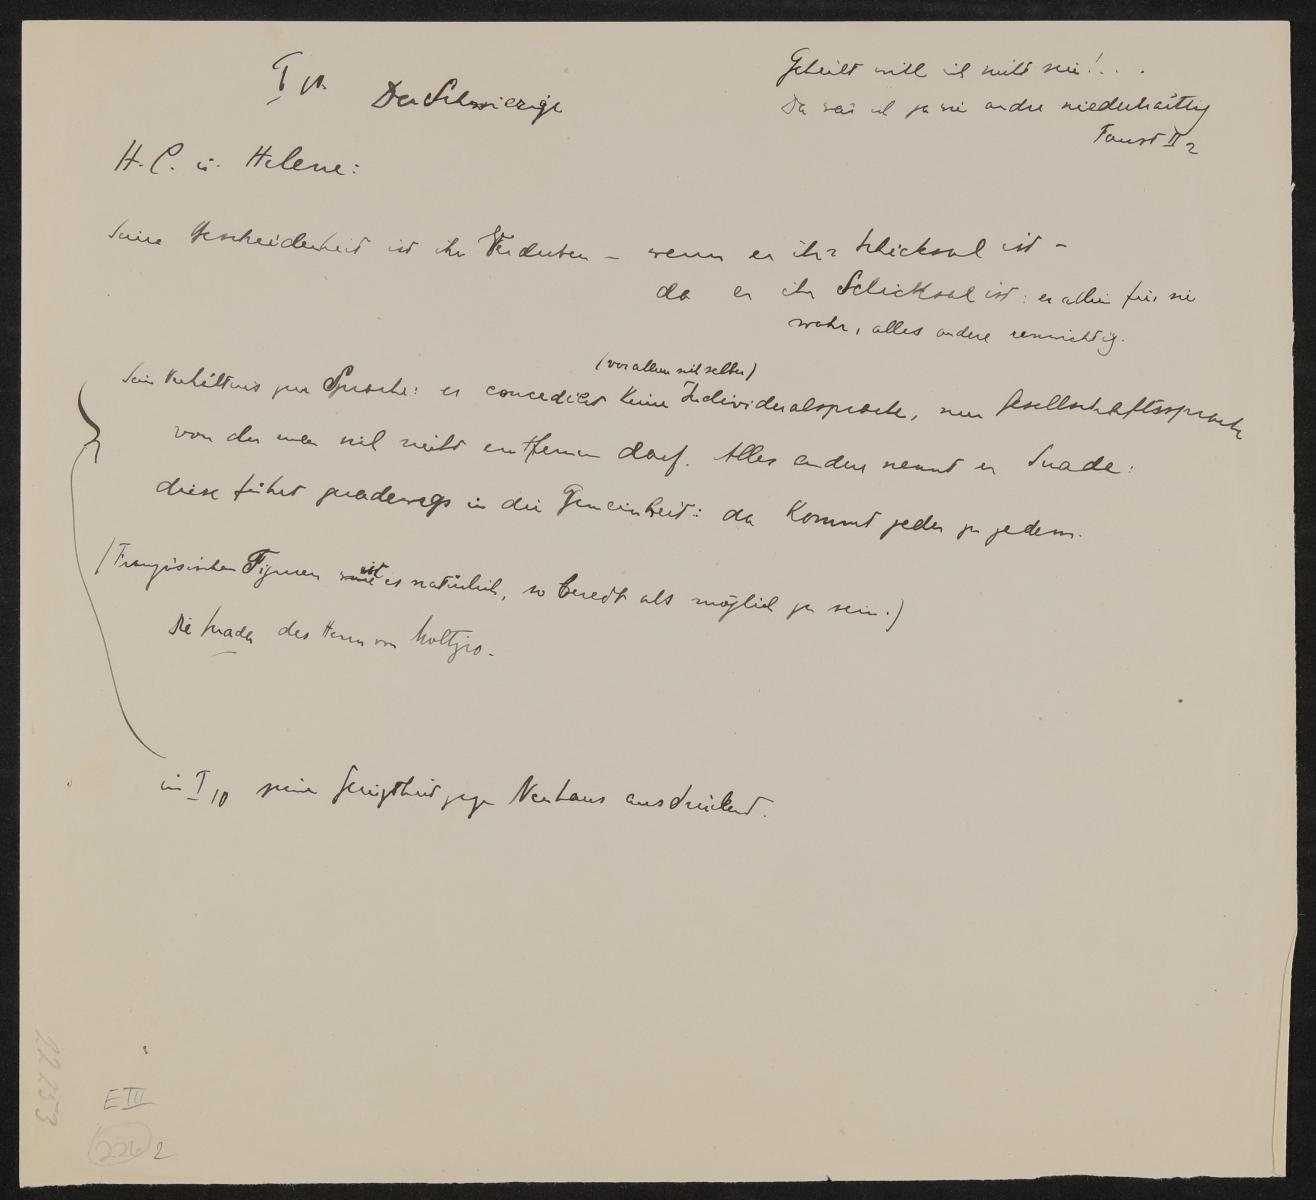 I 18. Der Schwierige
Geheilt will ich nicht sein! . . .
Da wär ich ja wie andre niederträchtig
Faust II 2
H. C. u. Helene:
Seine Bescheidenheit ist ihr Verderben – wenn er ihr Schicksal ist –
da er ihr Schicksal ist: er allein für sie
wahr, alles andere
(vor allem sich selber)
Sein Verhältnis zur Sprache: er concediert keine Individualsprache, nur Gesellschaftssprache
von der man sich nicht entfernen darf. Alles andere nennt er Suade:
diese führt geradewegs in die Gemeinheit: da kommt jeder zu jedem.
(Französischen Figuren ist es natürlich, so beredt als möglich zu sein.)
Die Suada des Herrn von
in I 10 seine Gereiztheit gegen Neuhaus ausdrückend.
22253
E III
226 2